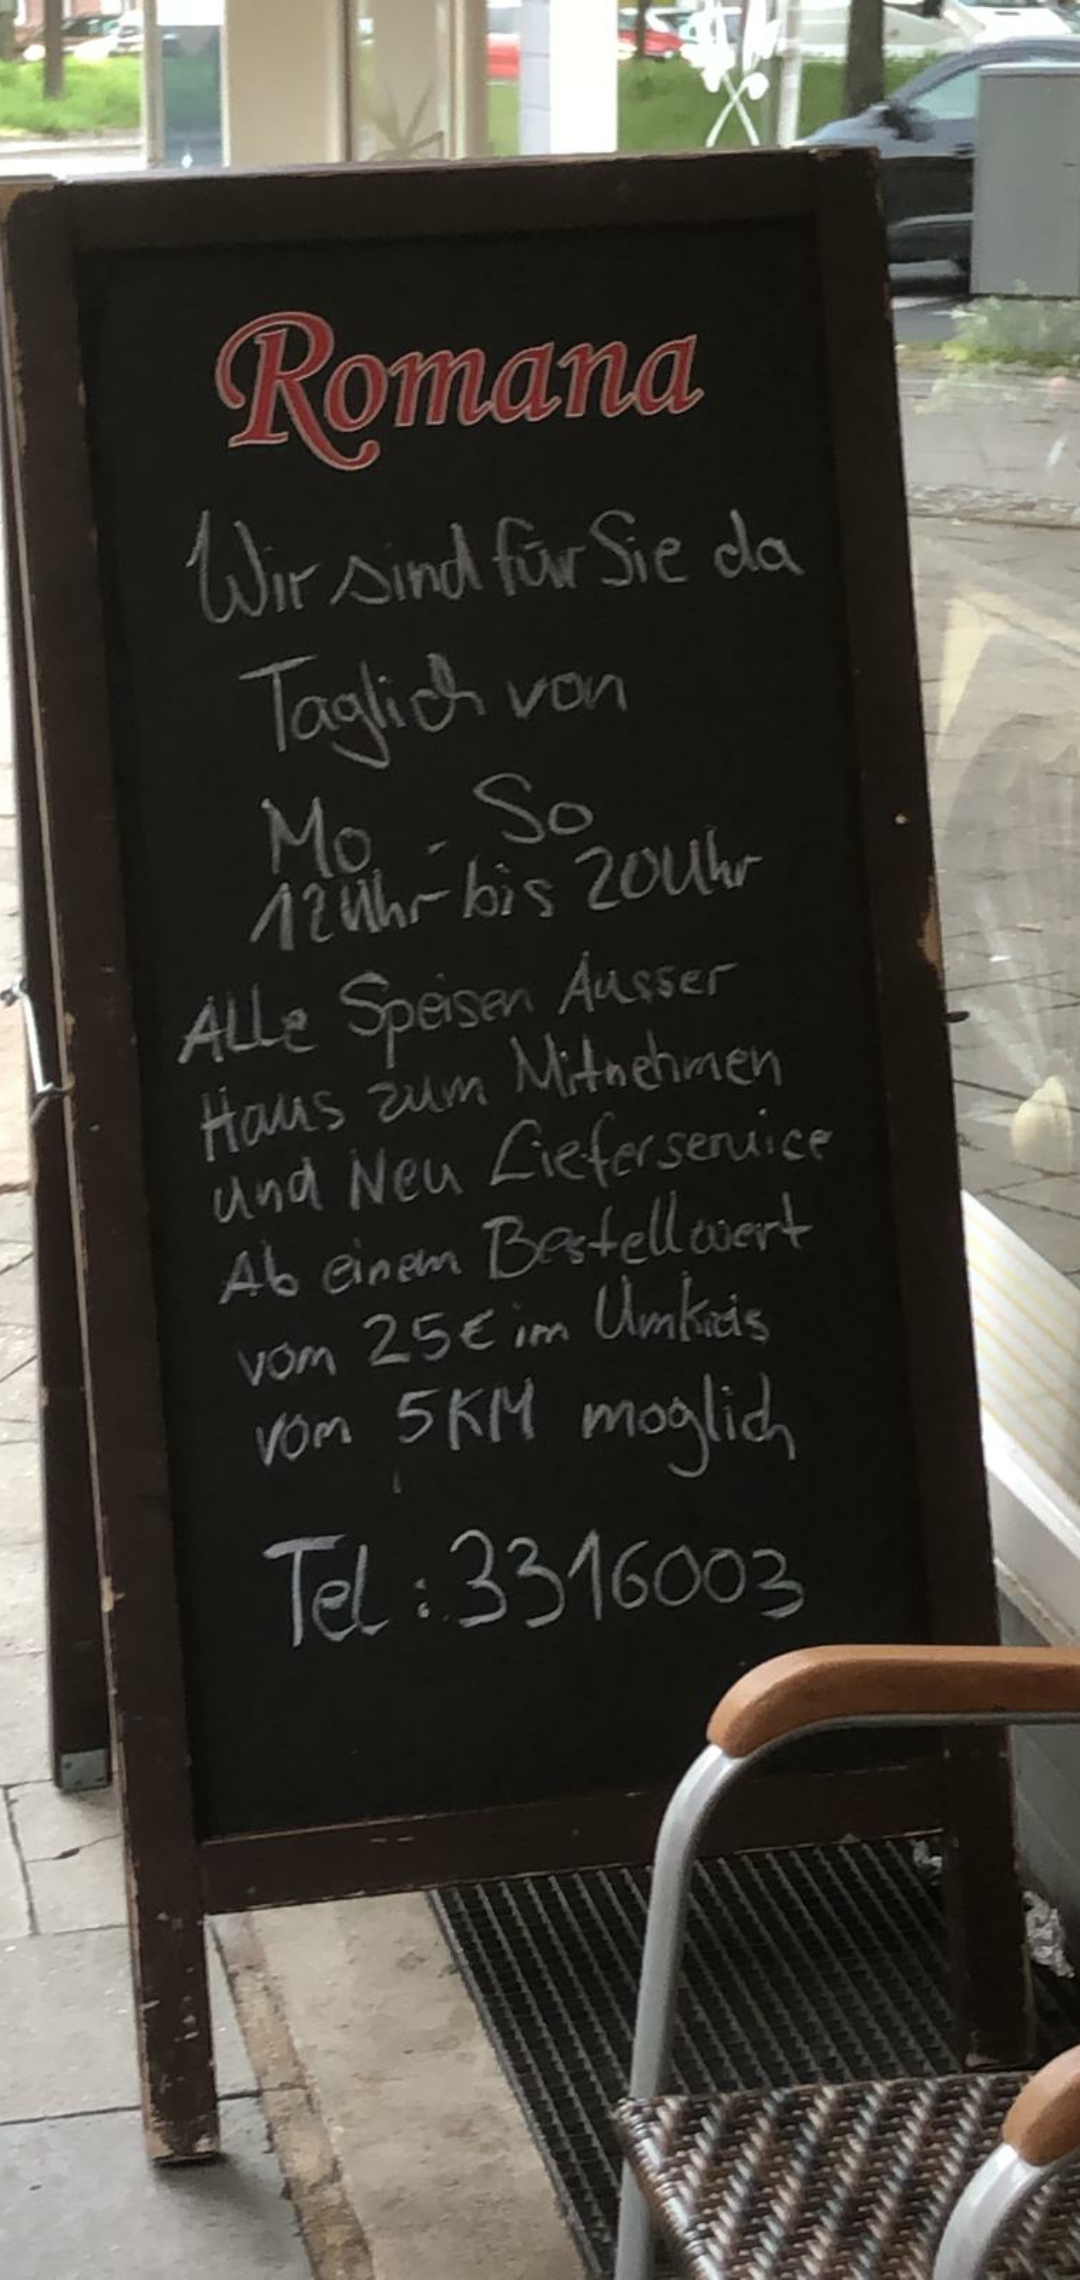 Romana
Wir sind für Sie da
Taglich von
Mo - So
12Uhr bis 20Uhr
ALLe Speisen Ausser
Haus zum Mitnehmen
und Neu Lieferservice
Ab einem Bestellwert
vom 25€ im Umkreis
vom 5KM moglich
Tel : 3316003